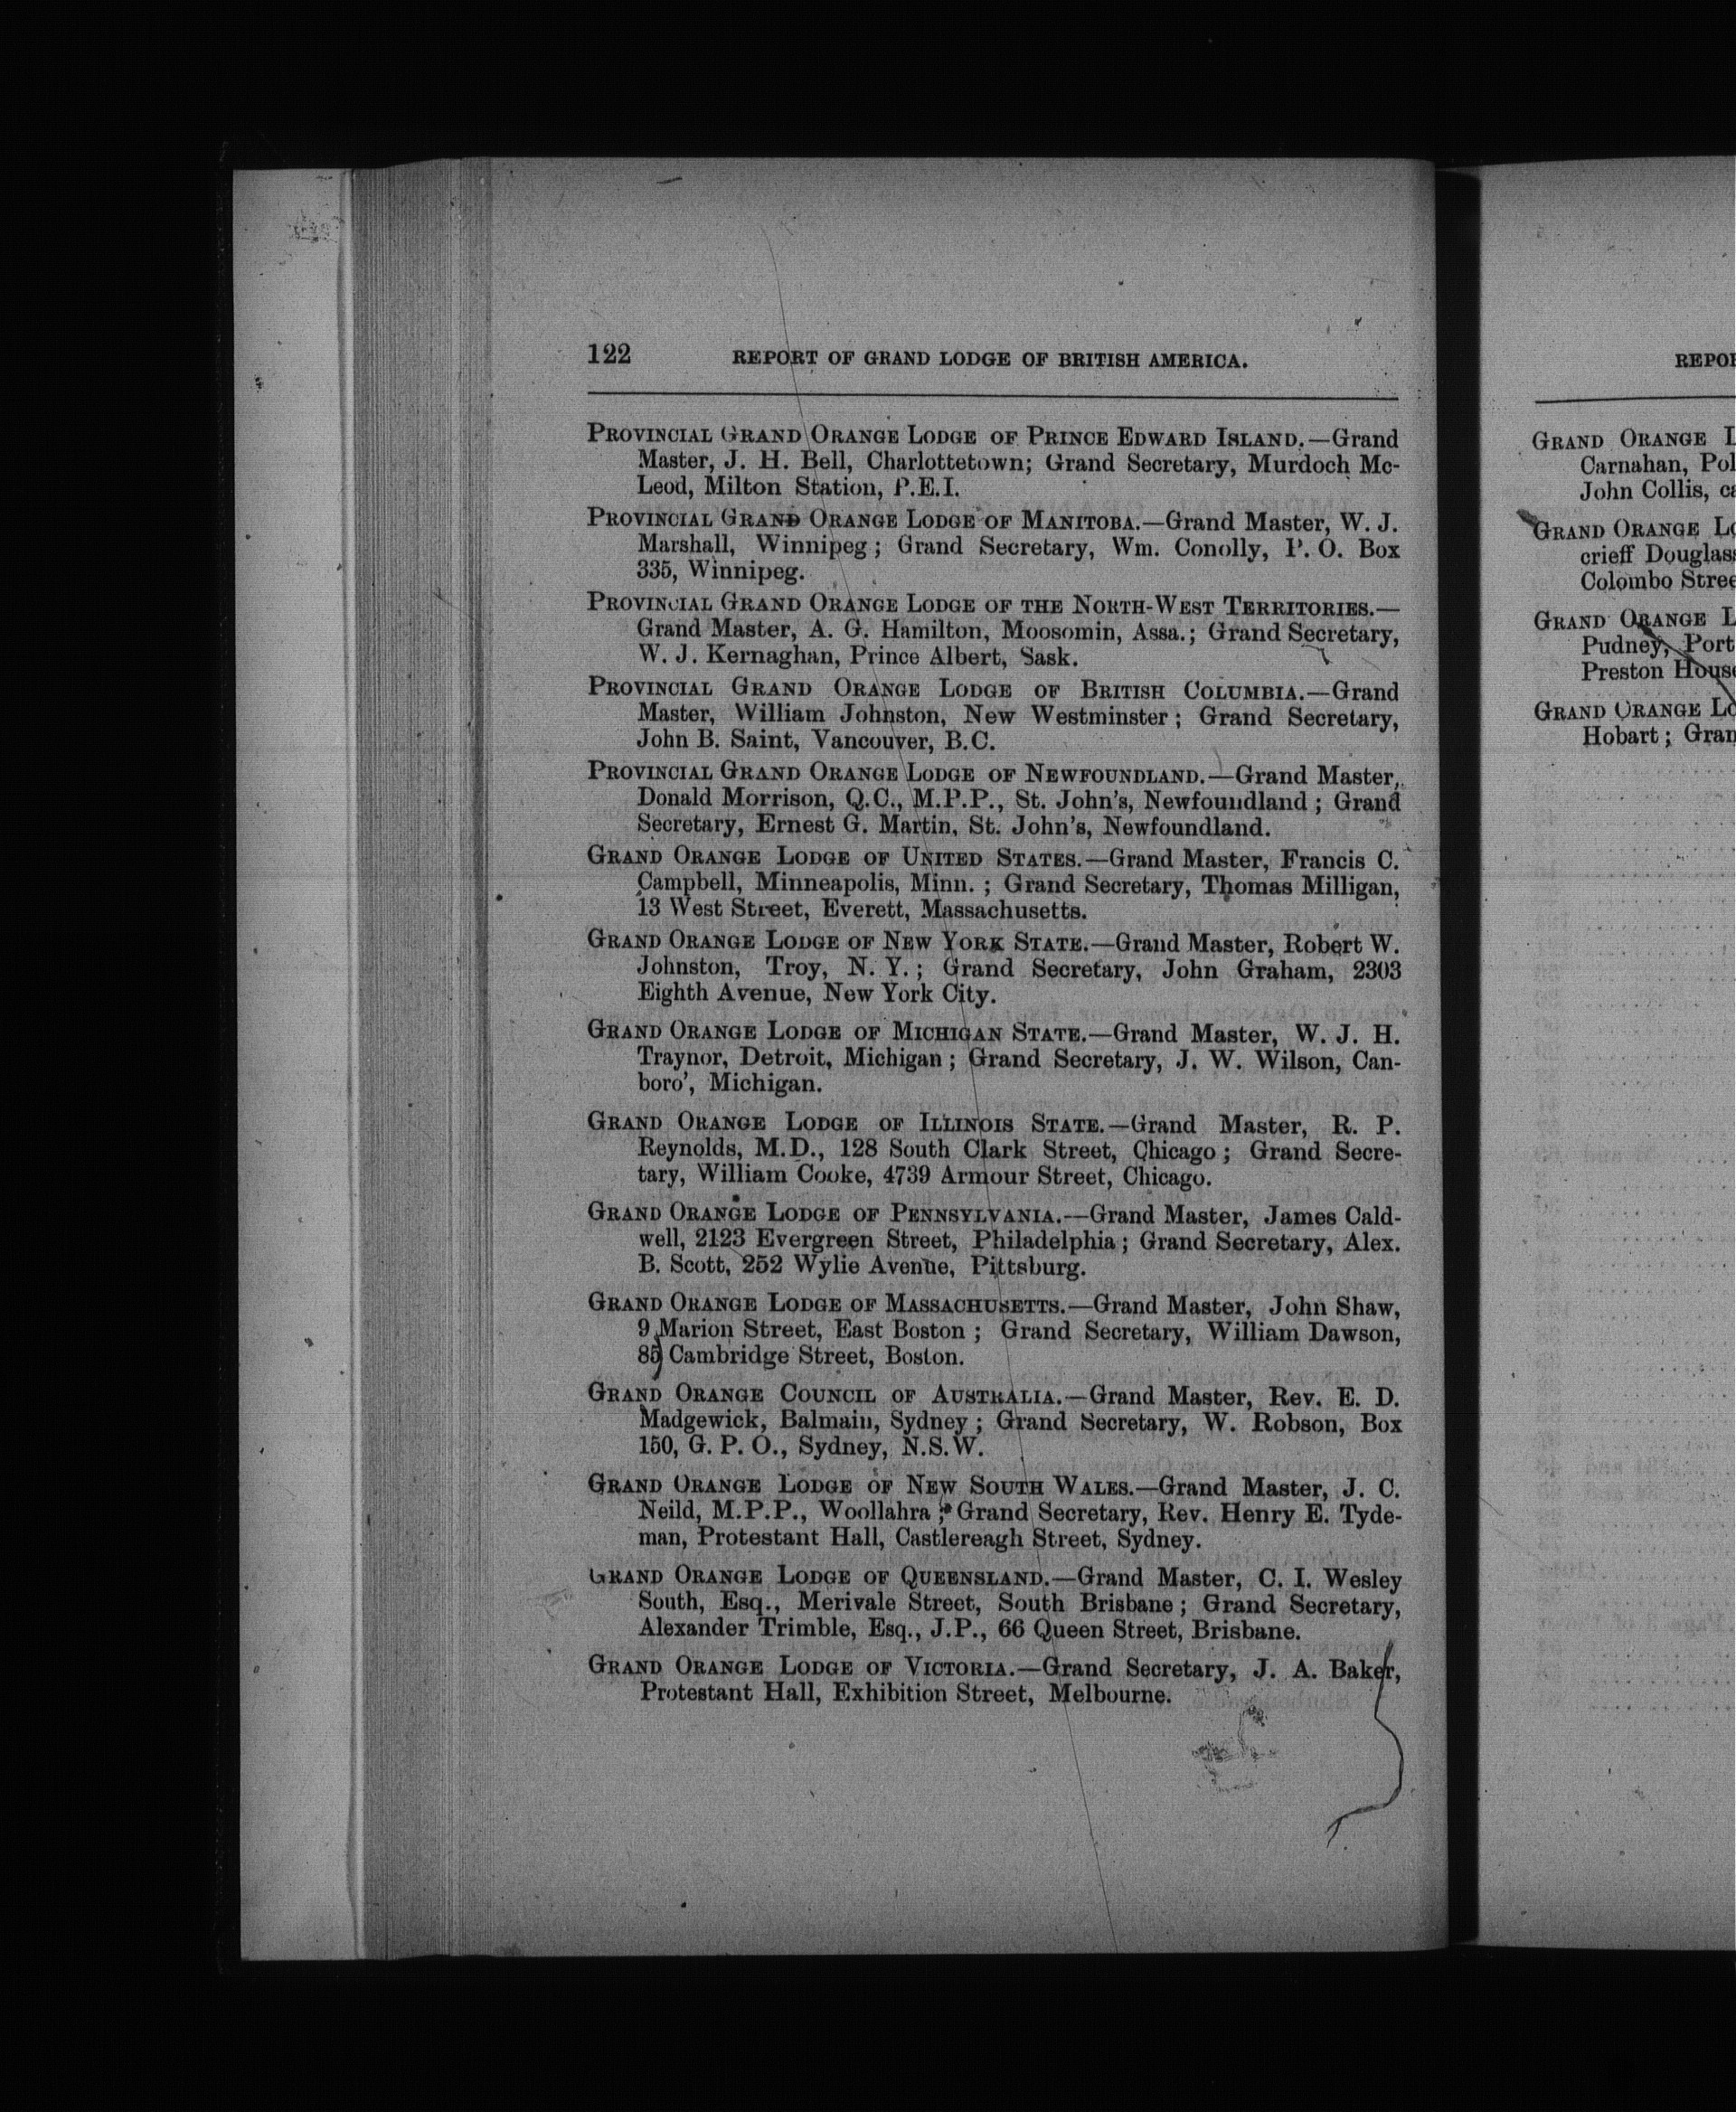 122 REPORT OF GRAND LODGE OF BRITISH AMERICA.
PROVINCIAL GRAND ORANGE LODGE OF PRINCE EDWARD ISLAND.—Grand
Master, J. H. Bell, Charlottetown; Grand Secretary, Murdoch Mc-
Leod, Milton Station, P.E.I.
PROVINCIAL GRAND ORANGE LODGE OF MANITOBA.—Grand Master, W. J.
Marshall, Winnipeg; Grand Secretary, Wm. Conolly, P. O. Box
335, Winnipeg.
PROVINCIAL GRAND ORANGE LODGE OF THE NORTH-WEST TERRITORIES.—
Grand Master, A. G. Hamilton, Moosomin, Assa.; Grand Secretary,
W. J. Kernaghan, Prince Albert, Sask.
PROVINCIAL GRAND ORANGE LODGE OF BRITISH COLUMBIA.—Grand
Master, William Johnston, New Westminster; Grand Secretary,
John B. Saint, Vancouver, B.C.
PROVINCIAL GRAND ORANGE LODGE OF NEWFOUNDLAND.—Grand Master,
Donald Morrison, Q.C., M.P.P., St. John's, Newfoundland; Grand
Secretary, Ernest G. Martin, St. John's, Newfoundland.
GRAND ORANGE LODGE OF UNITED STATES.—Grand Master, Francis C.
Campbell, Minneapolis, Minn.; Grand Secretary, Thomas Milligan,
13 West Street, Everett, Massachusetts.
GRAND ORANGE LODGE OF NEW YORK STATE.—Grand Master, Robert W.
Johnston, Troy, N. Y.; Grand Secretary, John Graham, 2303
Eighth Avenue, New York City.
GRAND ORANGE LODGE OF MICHIGAN STATE.—Grand Master, W. J. H.
Traynor, Detroit, Michigan; Grand Secretary, J. W. Wilson, Can-
boro', Michigan.
GRAND ORANGE LODGE OF ILLINOIS STATE.—Grand Master, R. P.
Reynolds, M.D., 128 South Clark Street, Chicago; Grand Secre-
tary, William Cooke, 4739 Armour Street, Chicago.
GRAND ORANGE LODGE OF PENNSYLVANIA.—Grand Master, James Cald-
well, 2123 Evergreen Street, Philadelphia; Grand Secretary, Alex.
B. Scott, 252 Wylie Avenue, Pittsburg.
GRAND ORANGE LODGE OF MASSACHUSETTS.—Grand Master, John Shaw,
9 Marion Street, East Boston; Grand Secretary, William Dawson,
85 Cambridge Street, Boston.
GRAND ORANGE COUNCIL OF AUSTRALIA.—Grand Master, Rev. E. D.
Madgewick, Balmain, Sydney; Grand Secretary, W. Robson, Box
150, G. P. O., Sydney, N.S.W.
GRAND ORANGE LODGE OF NEW SOUTH WALES.—Grand Master, J. C.
Neild, M.P.P., Woollahra; Grand Secretary, Rev. Henry E. Tyde-
man, Protestant Hall, Castlereagh Street, Sydney.
GRAND ORANGE LODGE OF QUEENSLAND.—Grand Master, C. I. Wesley
South, Esq., Merivale Street, South Brisbane; Grand Secretary,
Alexander Trimble, Esq., J.P., 66 Queen Street, Brisbane.
GRAND ORANGE LODGE OF VICTORIA.—Grand Secretary, J. A. Baker,
Protestant Hall, Exhibition Street, Melbourne.
REPO
GRAND ORANGE L
Carnahan, Pol
John Collis, ca
GRAND ORANGE LO
crieff Douglas
Colombo Stree
GRAND ORANGE L
Pudney, Port
Preston House
GRAND ORANGE LO
Hobart; Gran